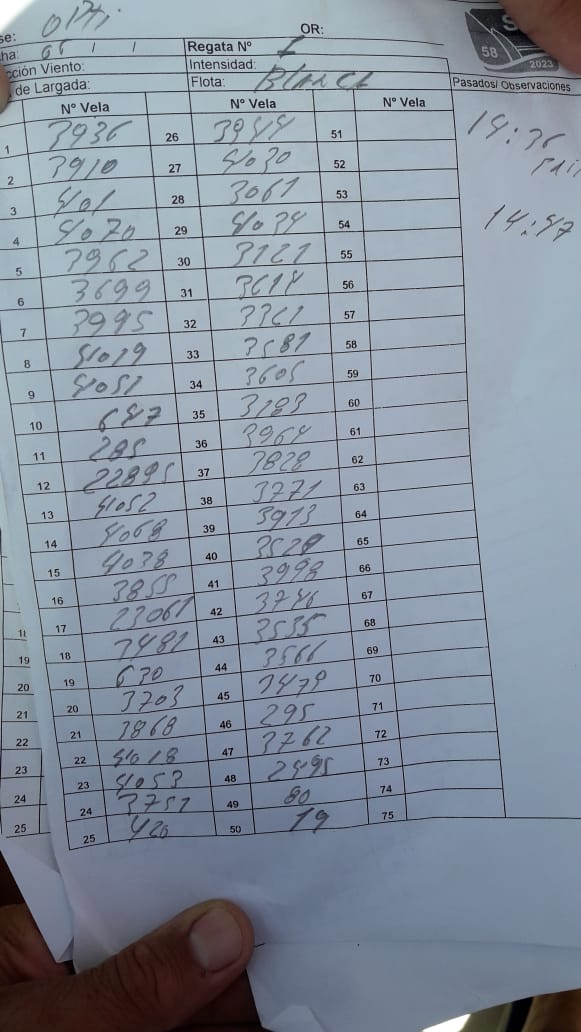 se: Opti OR:
ha: 66 / / Regata Nº 1
cción Viento: Intensidad:
de Largada: Flota: Blanca Pasados/ Observaciones
58 2023
Nº Vela Nº Vela Nº Vela
1 3936 26 3944 51 14:36
2 3910 27 4030 52
3 401 28 3061 53
4 4070 29 4034 54 14:47
5 3962 30 3121 55
6 3699 31 3614 56
7 3995 32 3361 57
8 4019 33 3581 58
9 4051 34 3605 59
10 647 35 3183 60
11 285 36 3964 61
12 22895 37 3828 62
13 4052 38 3771 63
14 4068 39 3913 64
15 4038 40 3528 65
16 3855 41 3998 66
17 23061 42 3746 67
18 3481 43 3535 68
19 630 44 3566 69
20 3703 45 3479 70
21 3868 46 295 71
22 4018 47 3762 72
23 4053 48 2495 73
24 3751 49 80 74
25 420 50 19 75
18
19
20
21
22
23
24
25